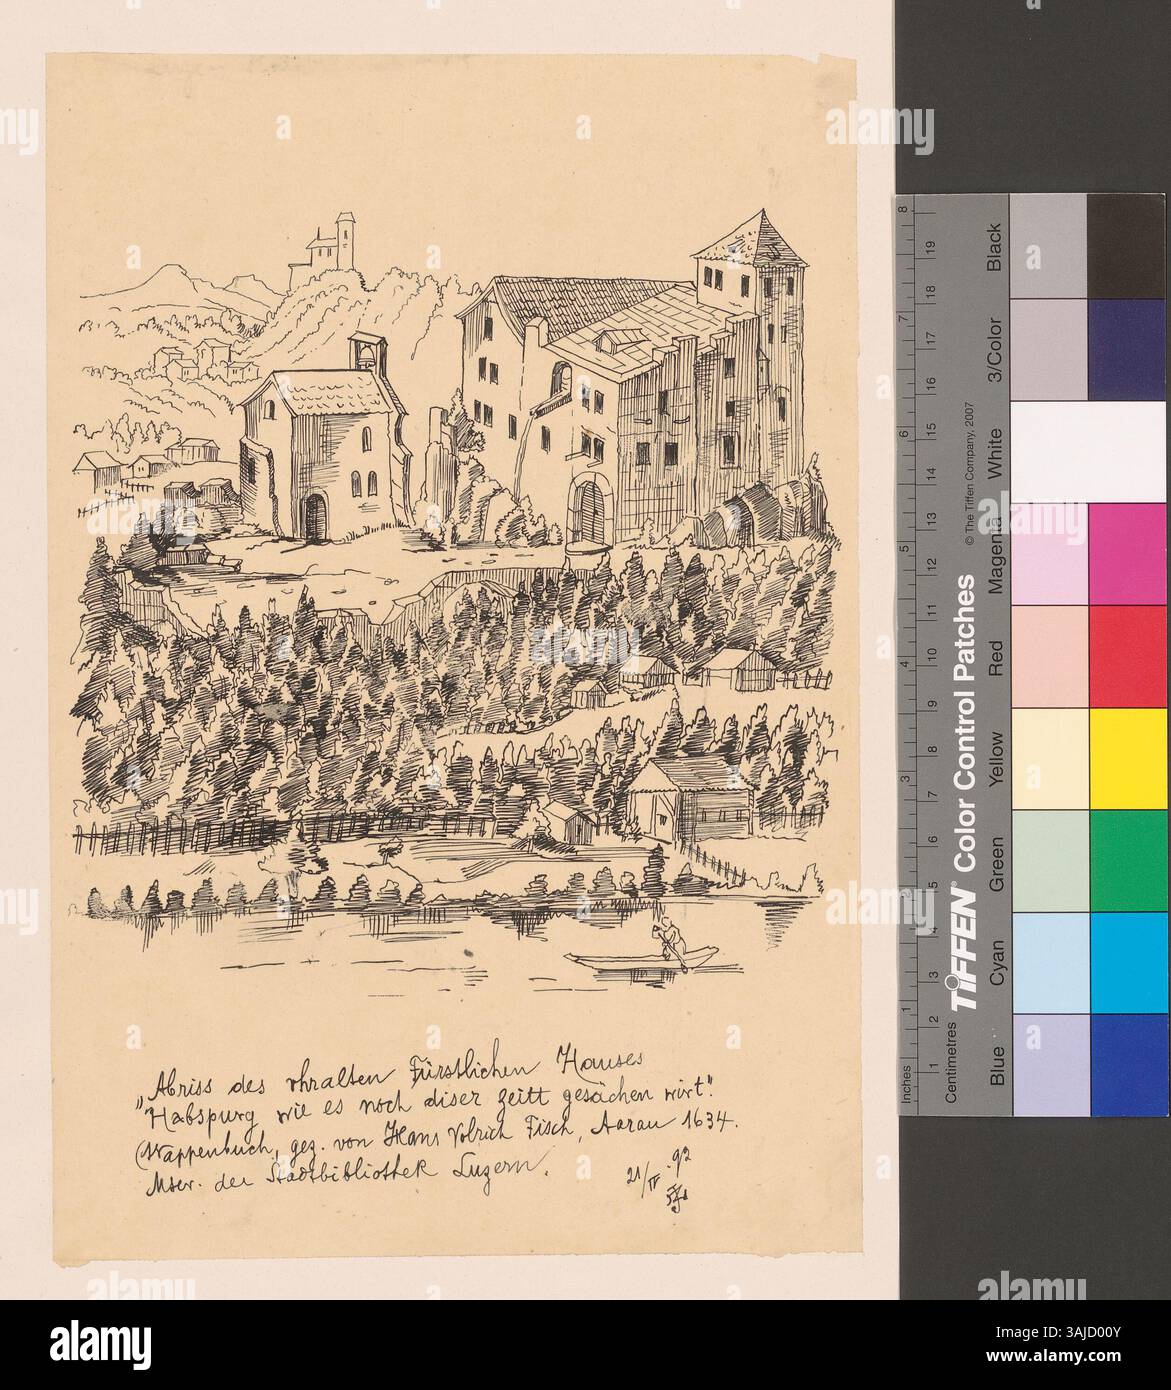 „Abriss des vhralten Fürstlichen Hauses
Habspurg wie es noch diser zeitt gesächen wirt".
(Wappenbuch, gez. von Hans Volrich Fisch, Aarau 1634.
Mscr. der Stadtbibliothek Luzern.
21/IV .92
Inches
1
2
3
4
5
6
7
8
Centimetres
1
2
3
4
5
6
7
8
9
10
11
12
13
14
15
16
17
18
19
TIFFEN® Color Control Patches
© The Tiffen Company, 2007
Blue
Cyan
Green
Yellow
Red
Magenta
White
3/Color
Black
a
alamy
alamy
Image ID: 3AJD00Y
www.alamy.com